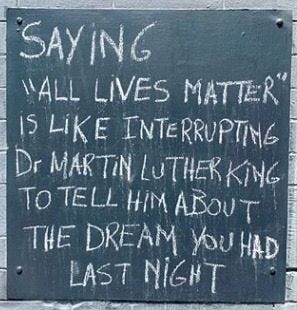 SAYING
"ALL LIVES MATTER"
IS LIKE INTERRUPTING
Dr MARTIN LUTHER KING
TO TELL HIM ABOUT
THE DREAM YOU HAD
LAST NIGHT